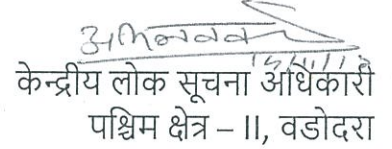 केन्द्रीय लोक सूचना अधिकारी
पश्चिम क्षेत्र – II, वडोदरा